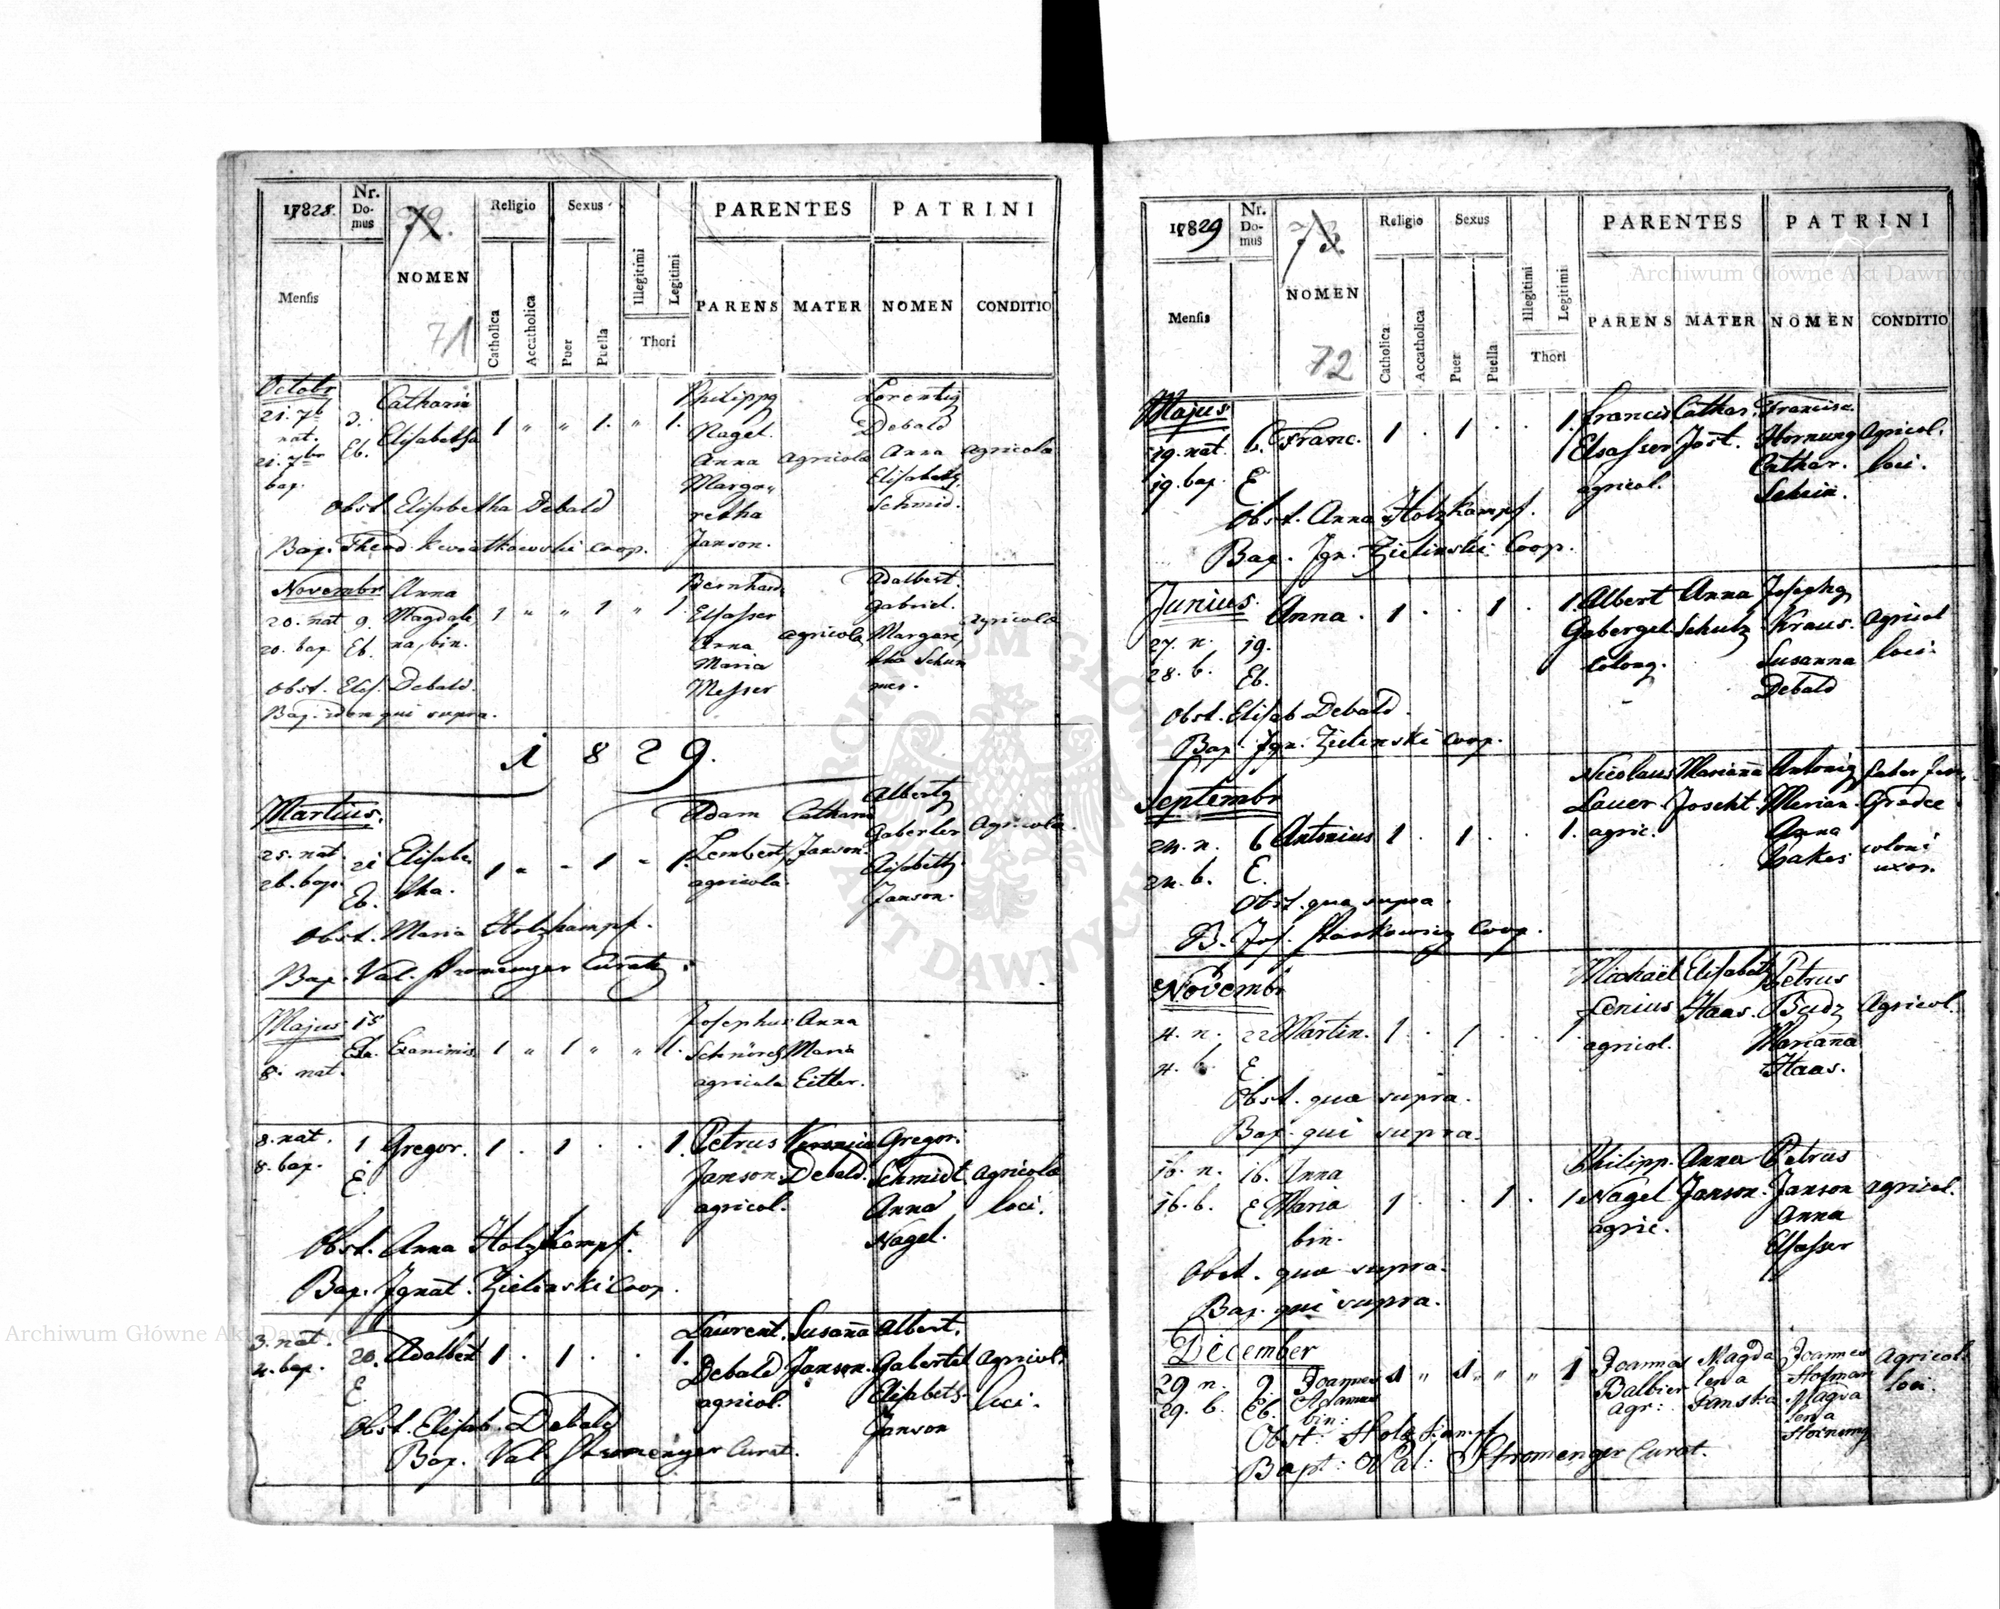 17828.
Nr. Domus
72.
NOMEN
71
Religio
Sexus
PARENTES
PATRINI
Mensis
Catholica
Accatholica
Puer
Puella
Illegitimi
Legitimi
Thori
PARENS
MATER
NOMEN
CONDITIO
Octobr
21. 7b nat. 3. Catharin 1 " " 1. " 1. Philippg Lorentig
21. 7br bap. Eb. Elisabetha Nagel. Debald
Anna agricola Anna agricola
Marga" Elisabeth
Obst. Elisabetha Debald retha Schmid.
Bap. Theod. Kwiatkowski coop. Janson.
Novembr Anna Bernhard Adalbert
20. nat 9. Magdale 1 " " 1 " 1 Elsasser Gabriel. agricola
20. bap Eb. na, bin. Anna agricola Margare
Maria tha Schum
Obst. Elis. Debald. Messer mer.
Bap. idem qui supra.
1829.
Martius.
Adam Cathari Albertg
25. nat. 21 Elisabe 1 " - 1 " 1. Lembert Janson. Gaberler Agricola.
26. bap. Eb. tha. agricola. Elisabeth
Janson.
Obst. Maria Holzkampf.
Bap. Val. Stromenger Curatg.
Majus 15 Josephus Anna
Eb. Exanimis 1 " 1 " " 1. Schnörch Maria
8. nat. agricola Eitler.
8. nat. 1. Gregor. 1. 1. . . 1. Petrus Veronica Gregor.
8. bap. E. Janson Debald. Schmidt agricola
agricol. Anna loci.
Nagel.
Obst. Anna Holzkampf.
Bap. Ignat. Zielinski Coop.
3. nat. 20. Adalbert 1. 1. . . 1. Laurent. Susaña Albert.
4. bap. E Debald Janson. Gabertel Agricol.
agricol. Elisabeth loci.
Janson
Obst. Elisab. Debald
Bap. Val. Stromenger Curat.
1829
Nr. Domus
73.
NOMEN
72
Religio
Sexus
PARENTES
PATRINI
Mensis
Catholica
Accatholica
Puer
Puella
Illegitimi
Legitimi
Thori
PARENS
MATER
NOMEN
CONDITIO
Majus
19. nat. 6. Franc. 1 . 1 . . 1. Francis Cathar. Francisc.
19. bap. E Elsasser Jost. Hornung Agricol.
agricol. Cathar. loci.
Schein.
Obst. Anna Holzkampf.
Bap. Ign. Zielinski Coop.
Junius. Anna. 1 . . 1 . 1 Albert Anna Josephg
27. n. 19. Gabergel Schutz Kraus. Agricol
28. b. Eb. colong. Susanna loci.
Debald
Obst. Elisab Debald.
Bap. Ign. Zielinski coop.
Septembr
Nicolaus Mariaña Antonig faber
24. n. 6 Antonius 1 . 1 . . 1. Lauer Joscht. Merian Gredec
24. b. E. agric. Anna coloni
Lakes uxor.
Obst. qua supra.
B. Jos. Starkowicz Coop.
Novembr
Michaël Elisabeth Petrus
4. n. 22 Martin. 1 . 1 . . 1 Lenius Haas. Budz Agricol.
4. b. E agricol. Mariaña
Haas.
Obst. qua supra.
Bap. qui supra.
16. n. 16. Anna Philipp. Anna Petrus
16. b. E Maria 1 . . 1 . 1 Nagel Janson. Janson agricol.
bin. agric. Anna
Elsasser
Obst. qua supra.
Bap. qui supra.
December
29 n. 9. Joannes 1 " 1 " " 1 Joannes Magda Joannes Agricol.
29. b. Eb. Adamus Balbier lena Hofman loci.
bin: agr: Panska Magda
lena
Hornung
Obst: Holzkampf
Bapt: Val: Stromenger Curat.
Archiwum Główne Akt Dawnych
Archiwum Główne Akt Dawnych
ARCHIWUM GŁÓWNE AKT DAWNYCH